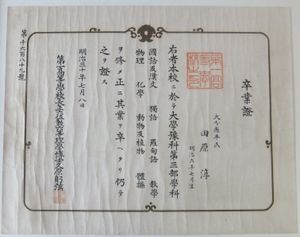 卒業證
大分縣平民
田原淳
明治六年七月生
右者本校ニ於テ大學豫科第三部學科
國語及漢文 獨語 羅甸語 數學
物理 化學 動物及植物 體操
ヲ修メ正ニ其業ヲ卒ヘタリ仍テ
之ヲ證ス
明治三十年七月八日
第一高等學校長
第千六百八十九號